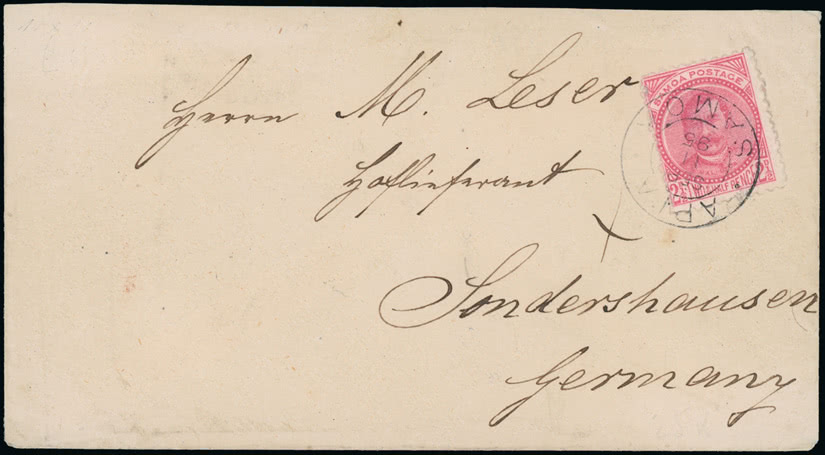 Herrn M. Leser
Hoflieferant
Sondershausen
Germany
SAMOA POSTAGE
HALF PENCE
APIA
SAMOA
95